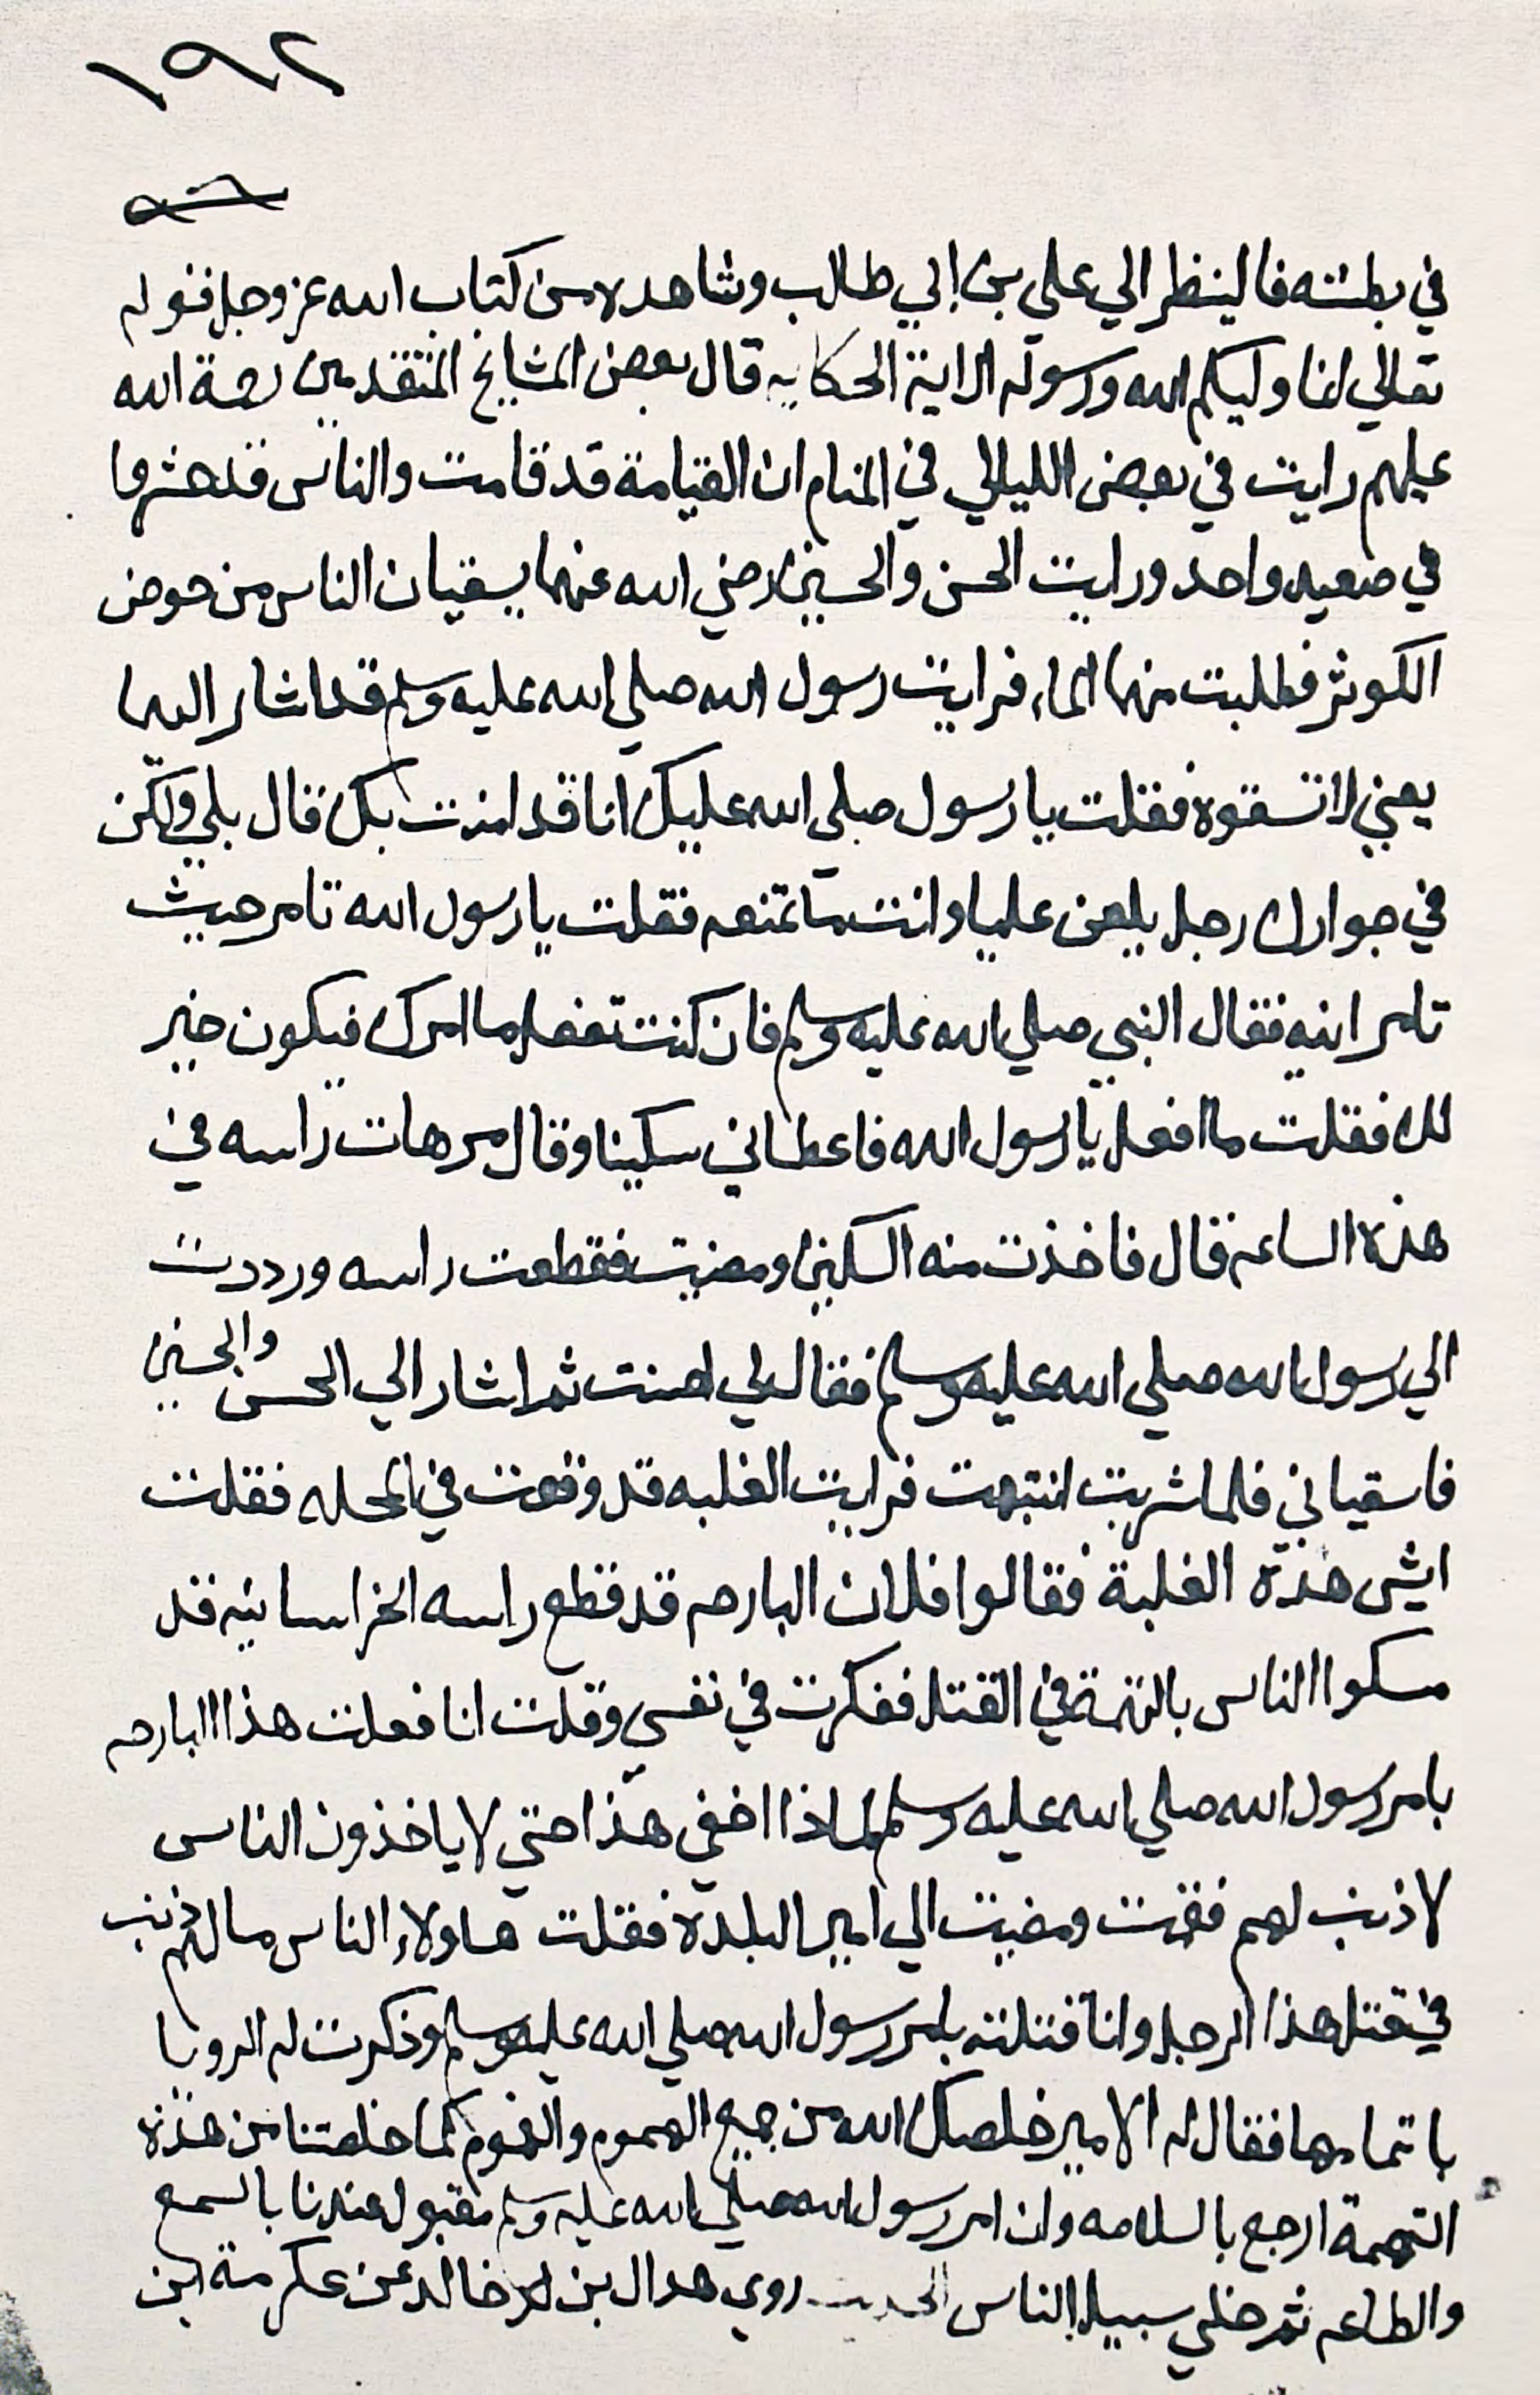 ١٩٢
في بطشه فالينظر الي علي بن ابي طالب وشاهده من كتاب الله عز وجل فقوله
تعالي انما وليكم الله ورسوله الاية الحكايه قال بعض المشايخ المتقدمين رحمة الله
عليهم رايت في بعض الليالي في المنام ان القيامة قد قامت والناس قد حشروا
في صعيد واحد ورايت الحسن والحسين رضي الله عنهما يسقيان الناس من حوض
الكوثر فطلبت منهما الماء فرايت رسول الله صلي الله عليه وسلم قد اشار اليهما
يعني لا تسقوه فقلت يا رسول صلي الله عليك انا قد امنت بك قال بلي ولكن
في جوارك رجل يلعن عليا وانت ما تمنعه فقلت يا رسول الله تامر حيث
تامر انيه فقال النبي صلي الله عليه وسلم فان كنت تفعل ما امرك فيكون خير
لك فقلت ما افعل يا رسول الله فاعطاني سكينا وقال مر هات راسه في
هذه الساعه قال فاخذت منه السكين ومضيت فقطعت راسه ورددت
الي رسول الله صلي الله عليه وسلم فقال لي احسنت ثم اشار الي الحسن والحسين
فاسقياني فلما شربت انتبهت فرايت الغلبه قد وقعت في المحله فقلت
ايش هذه الغلبة فقالوا فلان البارحه قد قطع راسه الخراسانيه قد
مسكوا الناس بالتهمة في القتل ففكرت في نفسي وقلت انا فعلت هذا البارحه
بامر رسول الله صلي الله عليه وسلم لماذا اخفي هذا حتي لا ياخذون الناس
لا ذنب لهم فقمت ومضيت الي امير البلدة فقلت هاولاء الناس ما لهم ذنب
في قتل هذا الرجل وانا قتلته بامر رسول الله صلي الله عليه وسلم وذكرت له الرويا
باتمامها فقال له الامير خلصك الله من جميع الهموم والغموم كما خلصتنا من هذه
التهمة ارجع بالسلامه وان امر رسول الله صلي الله عليه وسلم مقبول عندنا بالسمع
والطاعه ثم خلي سبيل الناس الحديث روي هدال بن خالد عن عكرمة ابن